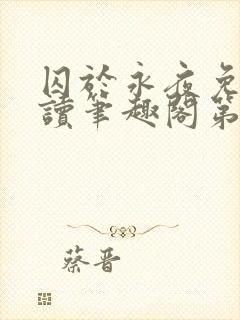 囚於永夜免
讀筆趣閣第
蔡晋